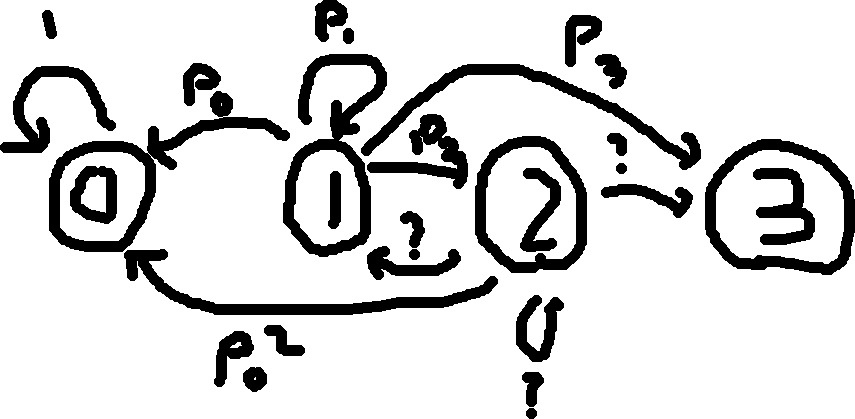 1
P₁
P₃
P₀
P₂
?
0
1
2
3
?
P₀²
?